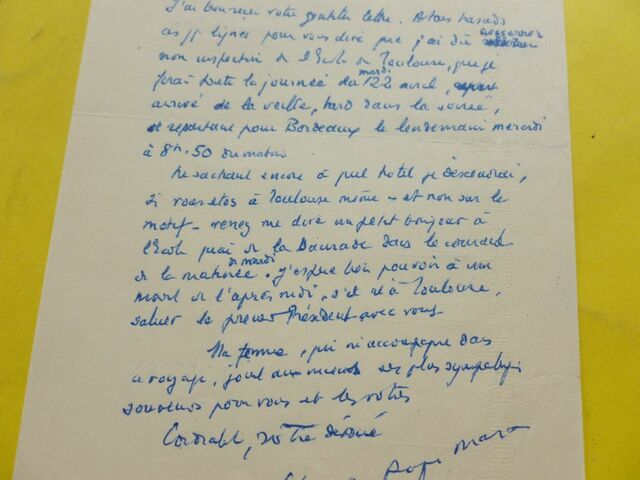 J'ai bien reçu votre gentille lettre. A tous hasards
ces lignes pour vous dire que j'ai dû
mon inspection de l'Ecole de Toulouse, que je
ferai toute la journée du mardi 22 avril,
arrivé de la veille, tard dans la soirée,
et repartant pour Bordeaux le lendemain mercredi
à 8h.50 du matin
Ne sachant encore à quel hotel je descendrai,
si vous etes à Toulouse même - et non sur le
motif - venez me dire un petit bonjour à
l'Ecole quai de la Daurade dans le courant
de la matinée de mardi. J'espère bien pouvoir à un
moment de l'après midi, s'il est à Toulouse,
saluer le Président avec vous
Ma femme, qui m'accompagne dans
ce voyage, joint aux miens ses plus sympathiques
souvenirs pour vous et les vôtres
Cordialt, votre dévoué